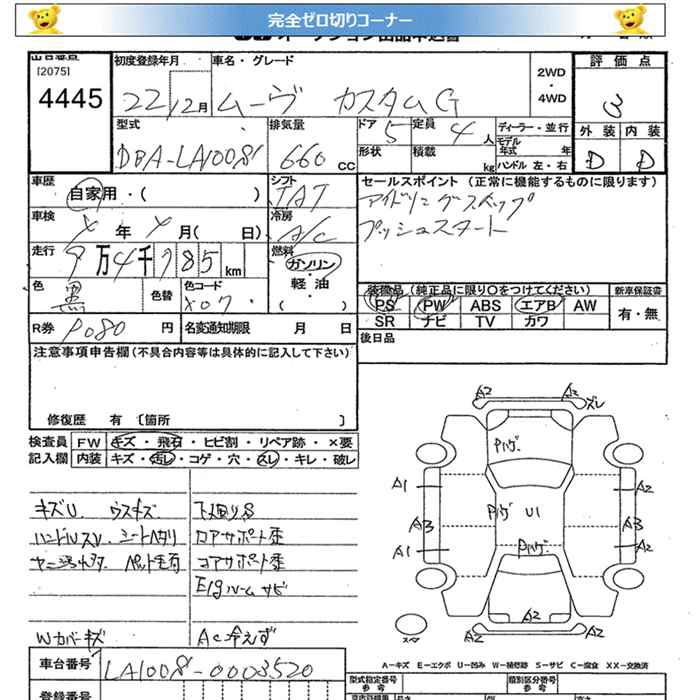 完全ゼロ切りコーナー
[2075]
4445
初度登録年月
22 12月
車名・グレード
ムーヴ カスタムG
2WD
・
4WD
評価点
3
外装 内装
D D
型式
DBA-LA100S
排気量
660 CC
ドア 5
定員 4 人
形状
積載 kg
ディーラー・並行
モデル年式 年
ハンドル 左・右
車歴
自家用・( )
シフト
IAT
セールスポイント (正常に機能するものに限ります)
アイドリングストップ
プッシュスタート
車検
年 月( 日)
冷房
A/C
走行
9万4千785km
燃料
ガソリン
・
軽・油
( )
色
黒
色替
色コード
X07
装備品 (純正品に限り○をつけてください)
PS PW ABS エアB AW
SR ナビ TV カワ
新車保証書
有・無
R券 円
名変通知期限 月 日
後日品
注意事項申告欄(不具合内容等は具体的に記入して下さい)
修復歴 有 〔箇所 〕
検査員記入欄
FW キズ・飛石・ヒビ割・リペア跡・×要
内装 キズ・汚レ・コゲ・穴・スレ・キレ・破レ
キズU ウスキズ
ハンドルスレ シートヘタリ
ペット毛有
Wカバーキズ
下廻りS
コアサポート歪
コアサポート歪
E/gルームサビ
AC冷えず
A2 A2 ズレ
Pハゲ
A1 A2
Pハゲ U1
A3 A3
A1 A2
Pハゲ
A2
A2
A−キズ E−エクボ U−凹み W−補修跡 S−サビ C−腐食 XX−交換済
車台番号
LA100S-0003520
型式指定番号
参考
類別区分番号
参考
登録番号